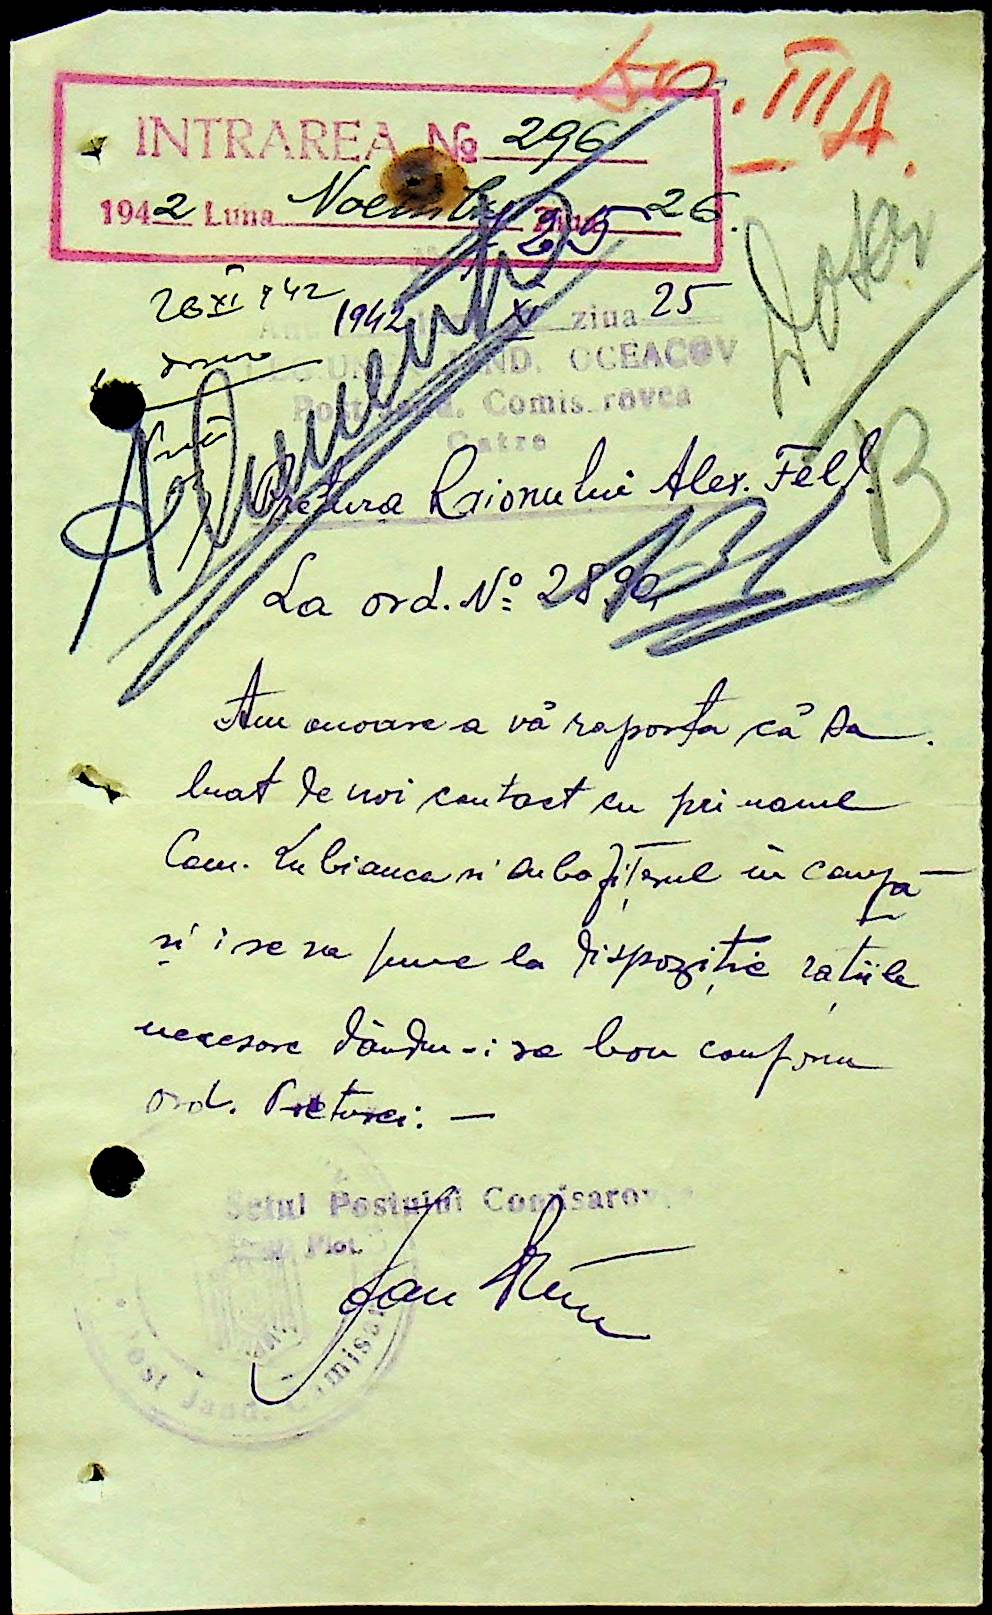 Bir. III A.
INTRAREA № 296
1942 Luna Noembrie Ziua 26.
25
Dosar
26 XI 942
1942 XI ziua 25
LEGIUNEA JAND. OCEACOV
Post Jand. Comisarovca
Catre
B
Pretura Raionului Alex. Feld.
La ord. Nº 2890,
Am onoare a vă raporta că s'a
luat de noi contact cu primarul
Com. Lubianca si subofițerul în cauză
și i se va pune la dispoziție rațiile
necesare dându-i se bon conform
ord. Preturei: —
Seful Postului Comisarovca
Plot.
Post Jand. Comisar